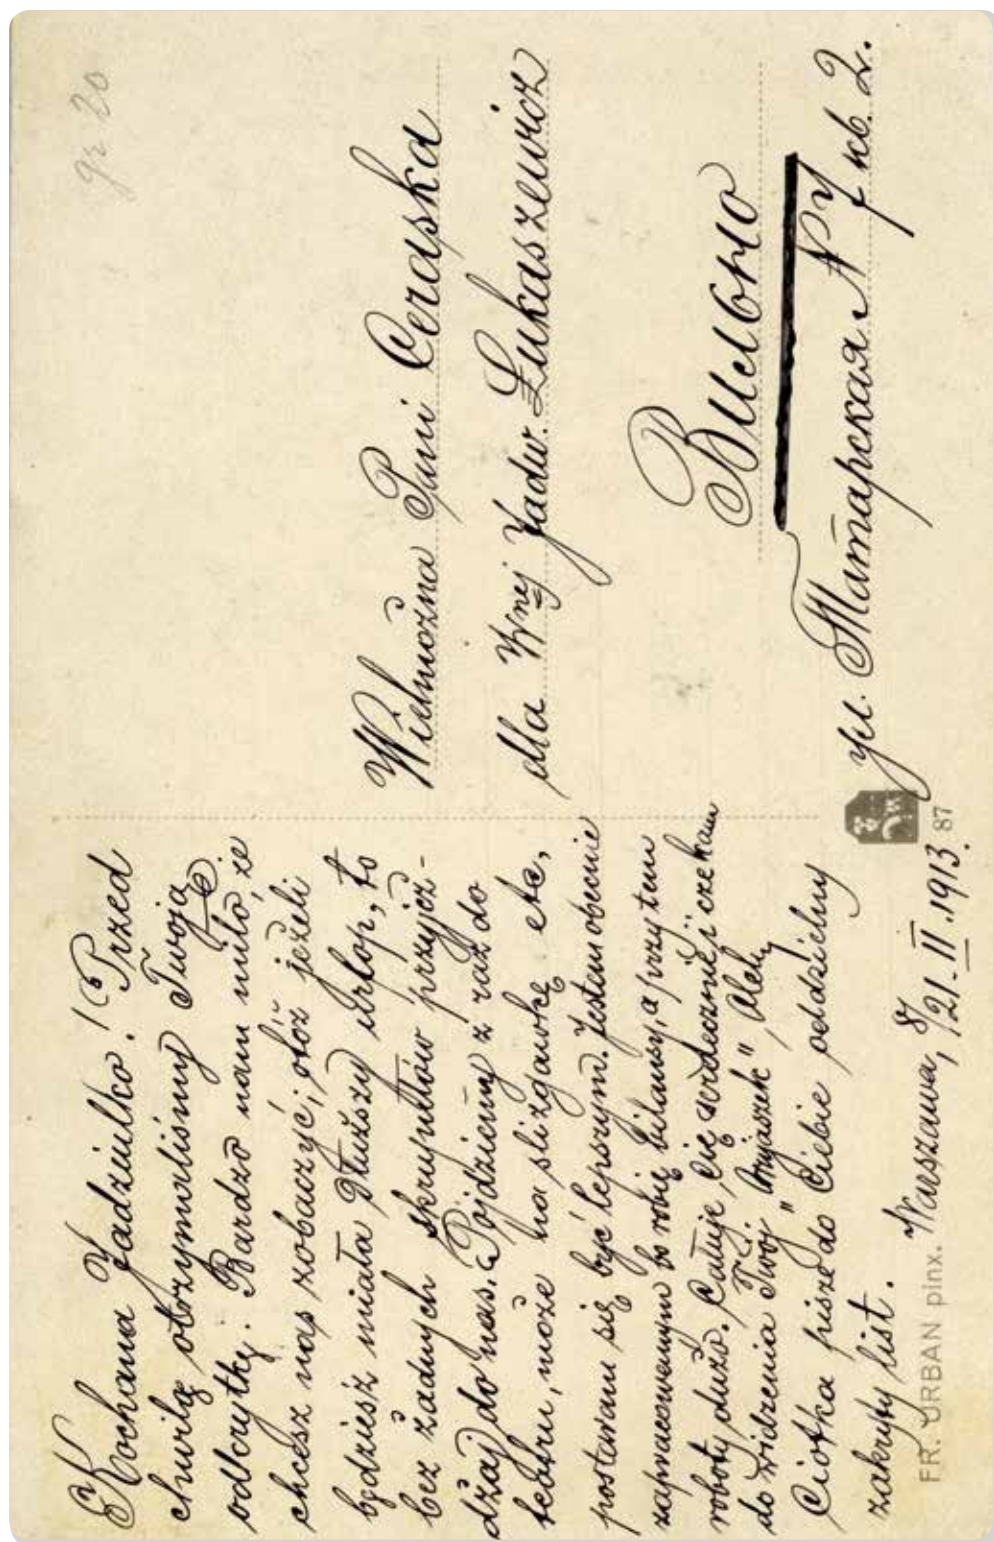 Kochana Jadziulko! (Przed
chwilą otrzymaliśmy Twoją
odkrytkę. Bardzo nam miło, że
chcesz nas zobaczyć; otóż jeżeli
będziesz miała dłuższy urlop, to
bez żadnych skrupułów przyjeż-
dżaj do nas. Pójdziemy z raz do
teatru, może na slizgawkę etc,
postaram się być lepszym. Jestem obecnie
zapracowanym bo robię bilansy, a przy tem
roboty dużo. Całuję Cię serdecznie i czekam
do widzenia Twój "Wujaszek" Olek
Ciotka pisze do Ciebie oddzielny
zakryty list. Warszawa, 8/21-II.1913.
FR. URBAN pinx.
87
gr 20
Wielmożna Pani Ceraska
dla Wnej Jadw. Łukaszewicz
Вильно
ул. Татарская N 7 кв. 2.